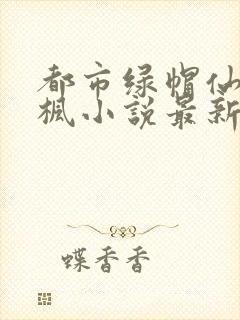 都市绿帽仙
枫小说最新
蝶香香